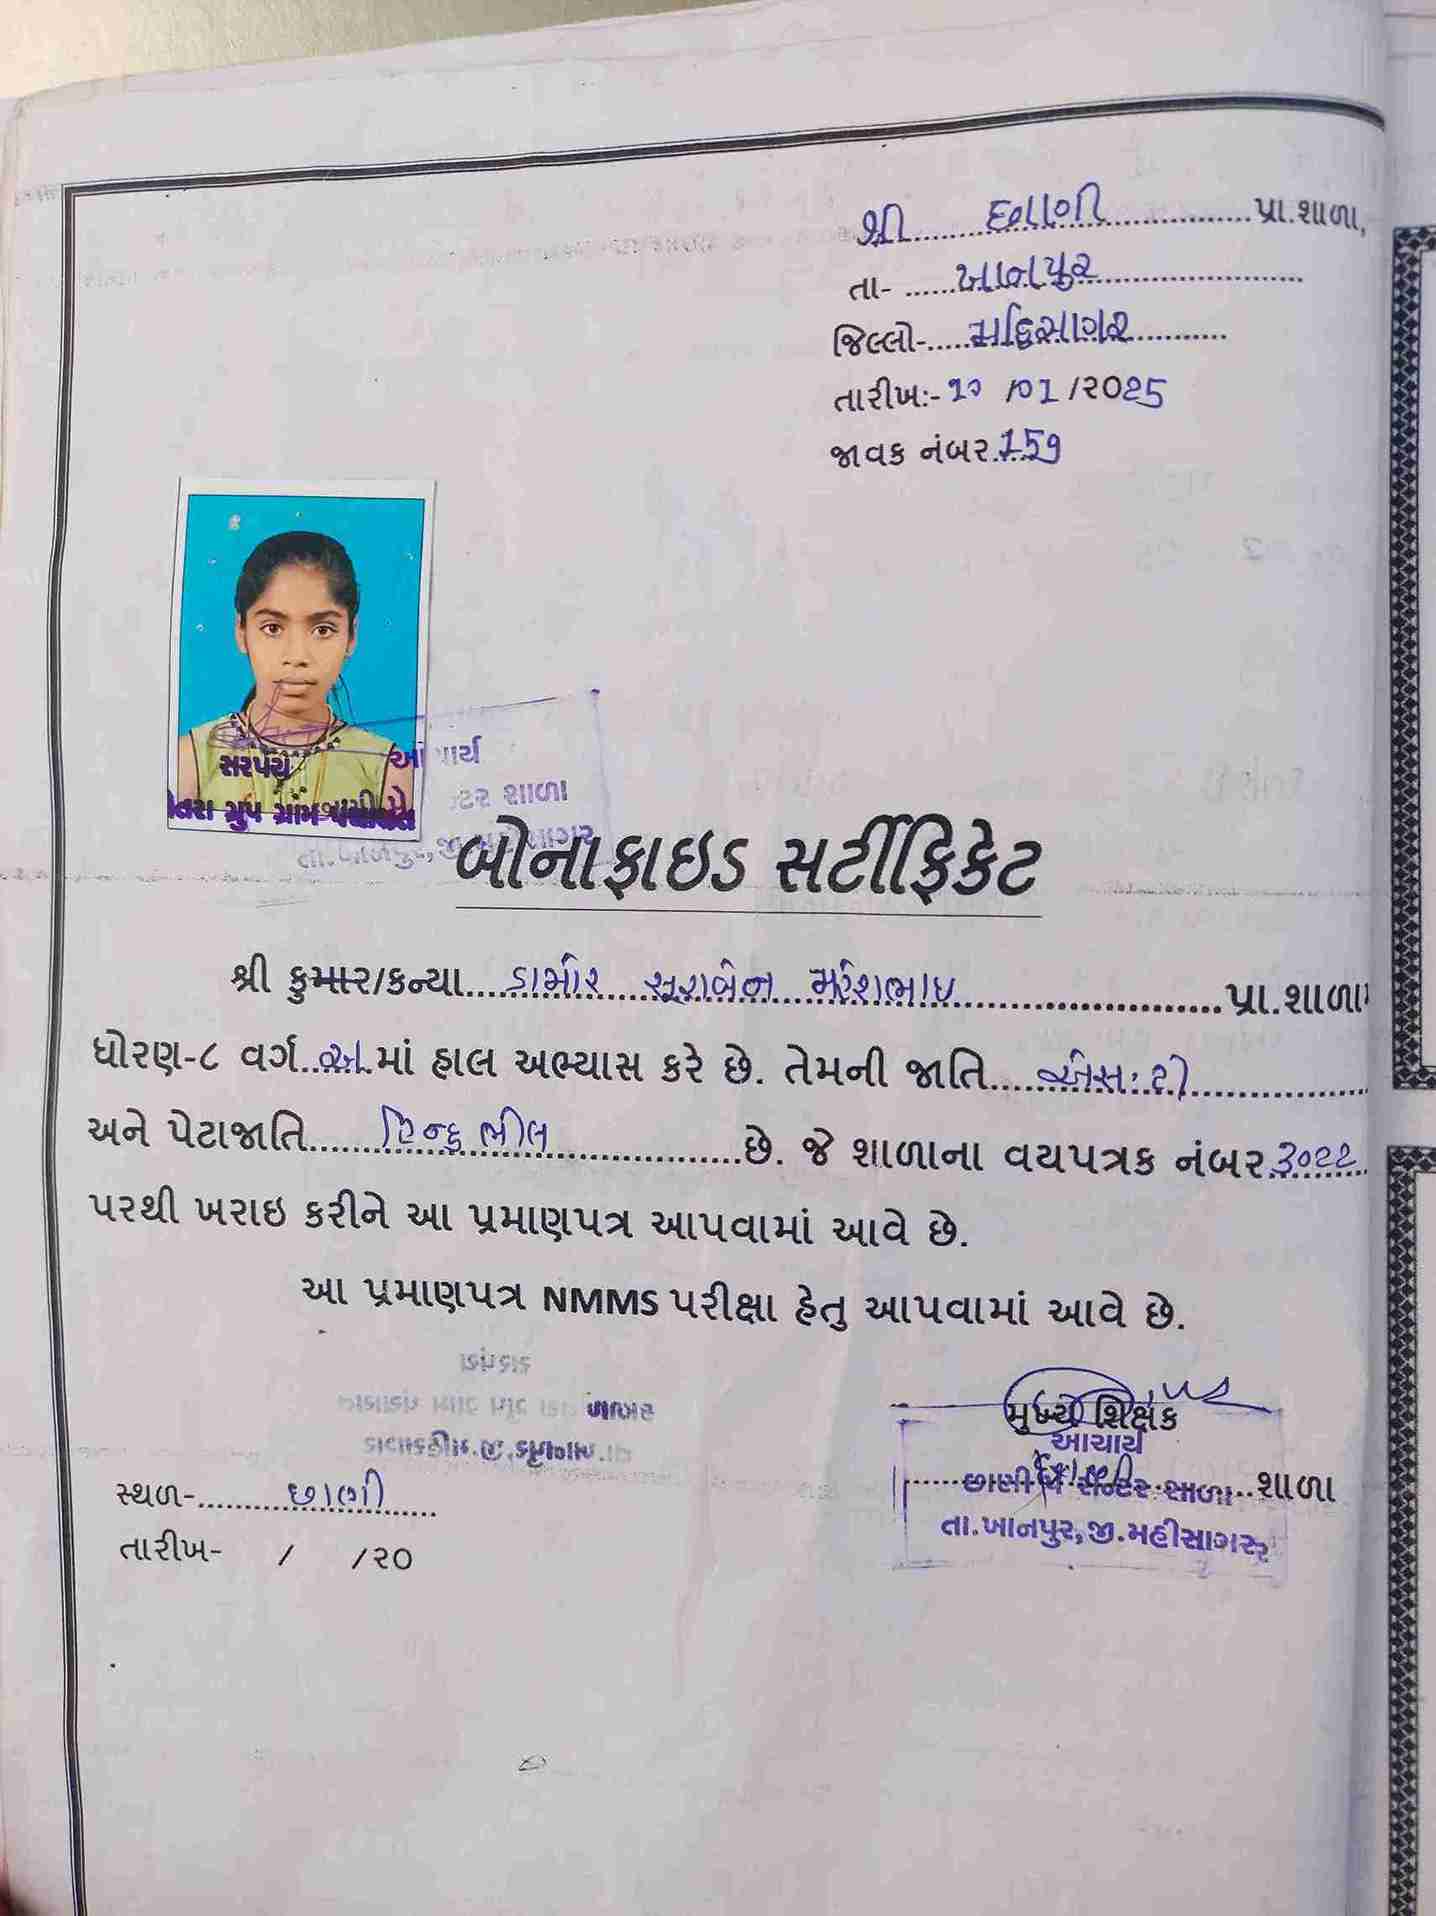 શ્રી છાણી પ્રા.શાળા,
તા- ખાનપુર
જિલ્લો- મહિસાગર
તારીખ:- ૧૦ /૦૧ /૨૦૨૫
જાવક નંબર ૧૫૭
સરપંચ
ગ્રુપ ગ્રામ
આચાર્ય
સેન્ટર શાળા
બોનાફાઇડ સર્ટીફિકેટ
શ્રી કુમાર/કન્યા ડામોર સૂરાબેન પ્રા.શાળામ
ધોરણ-૮ વર્ગ અ માં હાલ અભ્યાસ કરે છે. તેમની જાતિ એસ.ટી
અને પેટાજાતિ હિન્દુ ભીલ છે. જે શાળાના વયપત્રક નંબર ૩૦૨૨
પરથી ખરાઇ કરીને આ પ્રમાણપત્ર આપવામાં આવે છે.
આ પ્રમાણપત્ર NMMS પરીક્ષા હેતુ આપવામાં આવે છે.
મુખ્ય શિક્ષક
આચાર્ય
છાણી પે સેન્ટર શાળા શાળા
તા.ખાનપુર,જી.મહીસાગર
સ્થળ- છાણી
તારીખ- / /૨૦